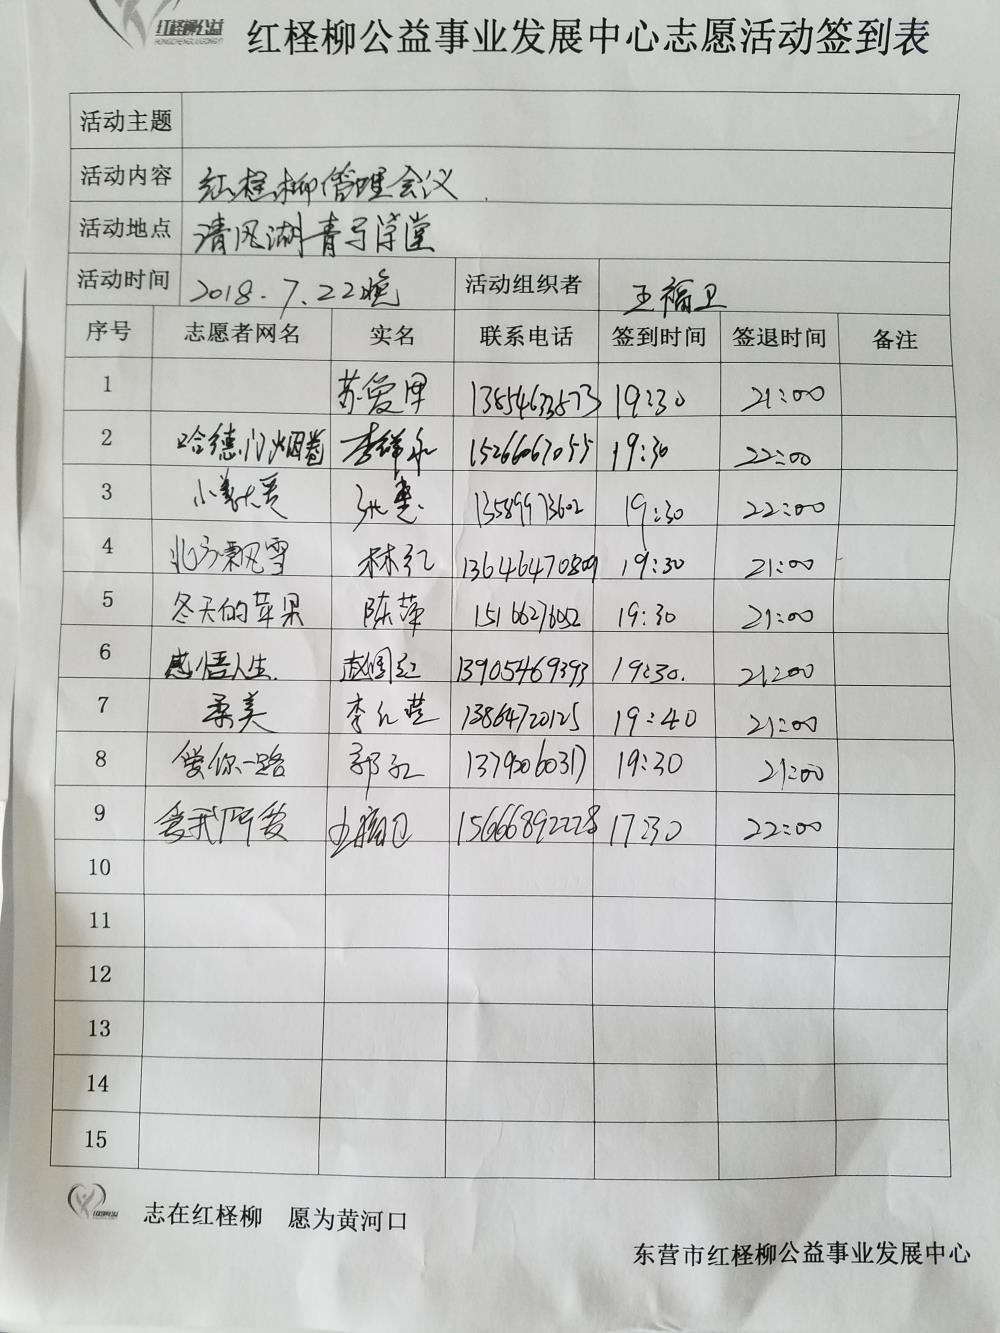 红柽柳公益
红柽柳公益事业发展中心志愿活动签到表
活动主题
活动内容 红柽柳管理会议
活动地点 清风湖青年学堂
活动时间 2018.7.22晚 活动组织者 王福卫
序号 志愿者网名 实名 联系电话 签到时间 签退时间 备注
1 苏爱 19:30 21:00
2 哈德门烟圈 李祥永 15266067055 19:30 22:00
3 小美大爱 张惠 13589973602 19:30 22:00
4 北方飘雪 林红 13646470809 19:30 21:00
5 冬天的苹果 陈萍 15166276052 19:30 21:00
6 感悟人生 赵国红 13905469393 19:30. 21:00
7 柔美 李红莲 13864720125 19:40 21:00
8 爱你一路 郭红 13792060317 19:30 21:00
9 爱我所爱 王福卫 15666892228 17:30 22:00
10
11
12
13
14
15
志在红柽柳 愿为黄河口
东营市红柽柳公益事业发展中心